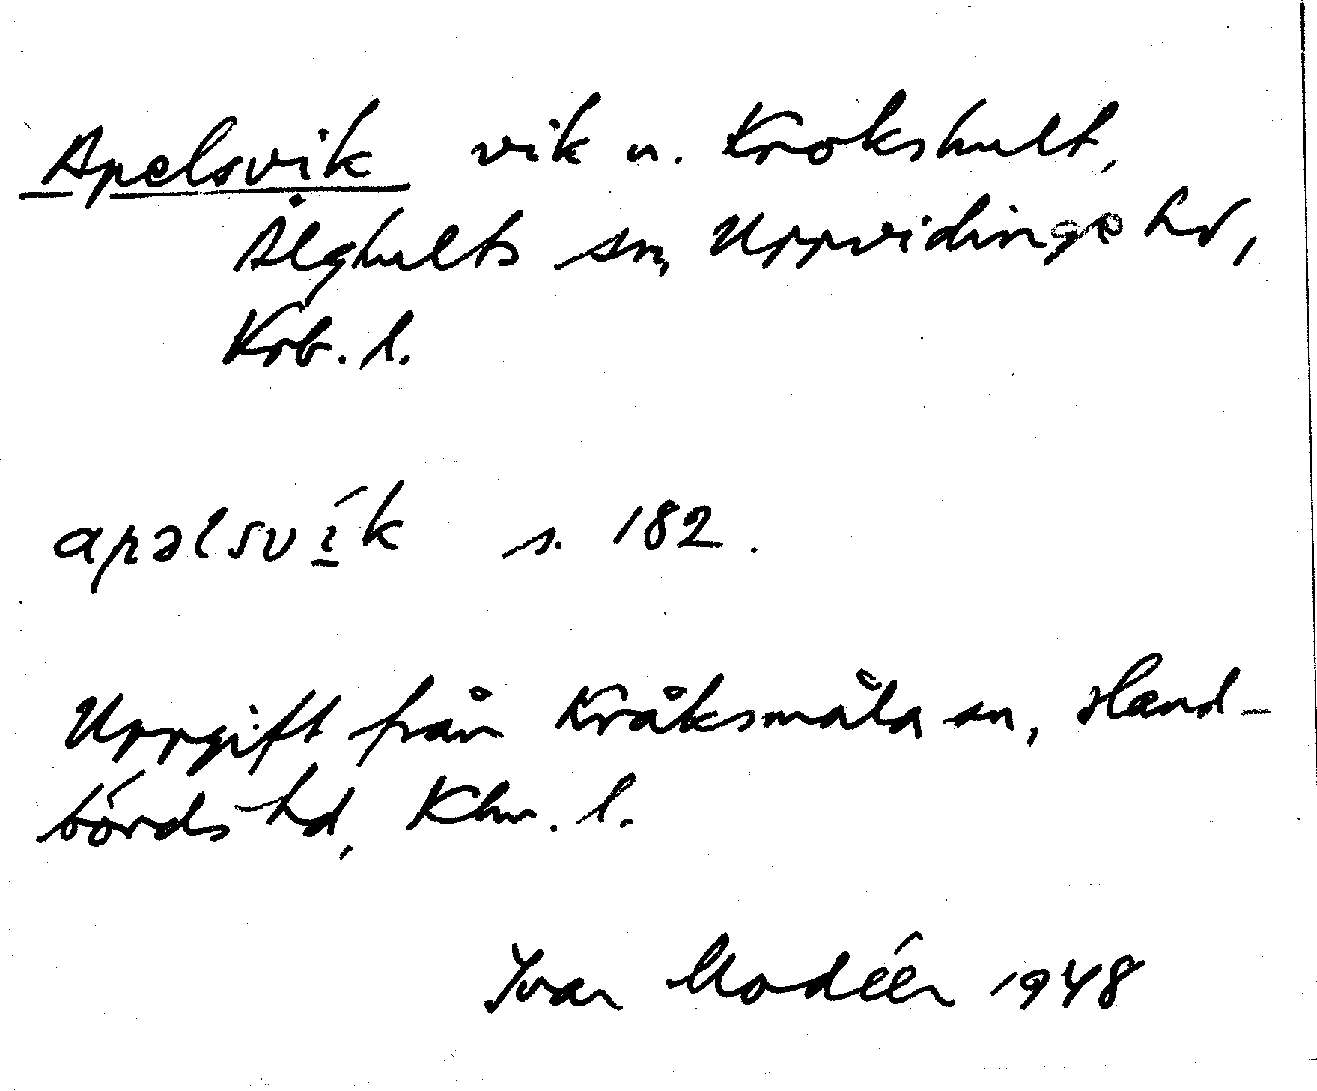 Apelsvik vik u. Krokshult,
Älghults sn, Uppvidinge hd,
Krb. l.
apəlsvík s. 182.
Uppgift från Kråksmåla sn, Hand-
börds hd, Klm. l.
Ivar Modéer 1948